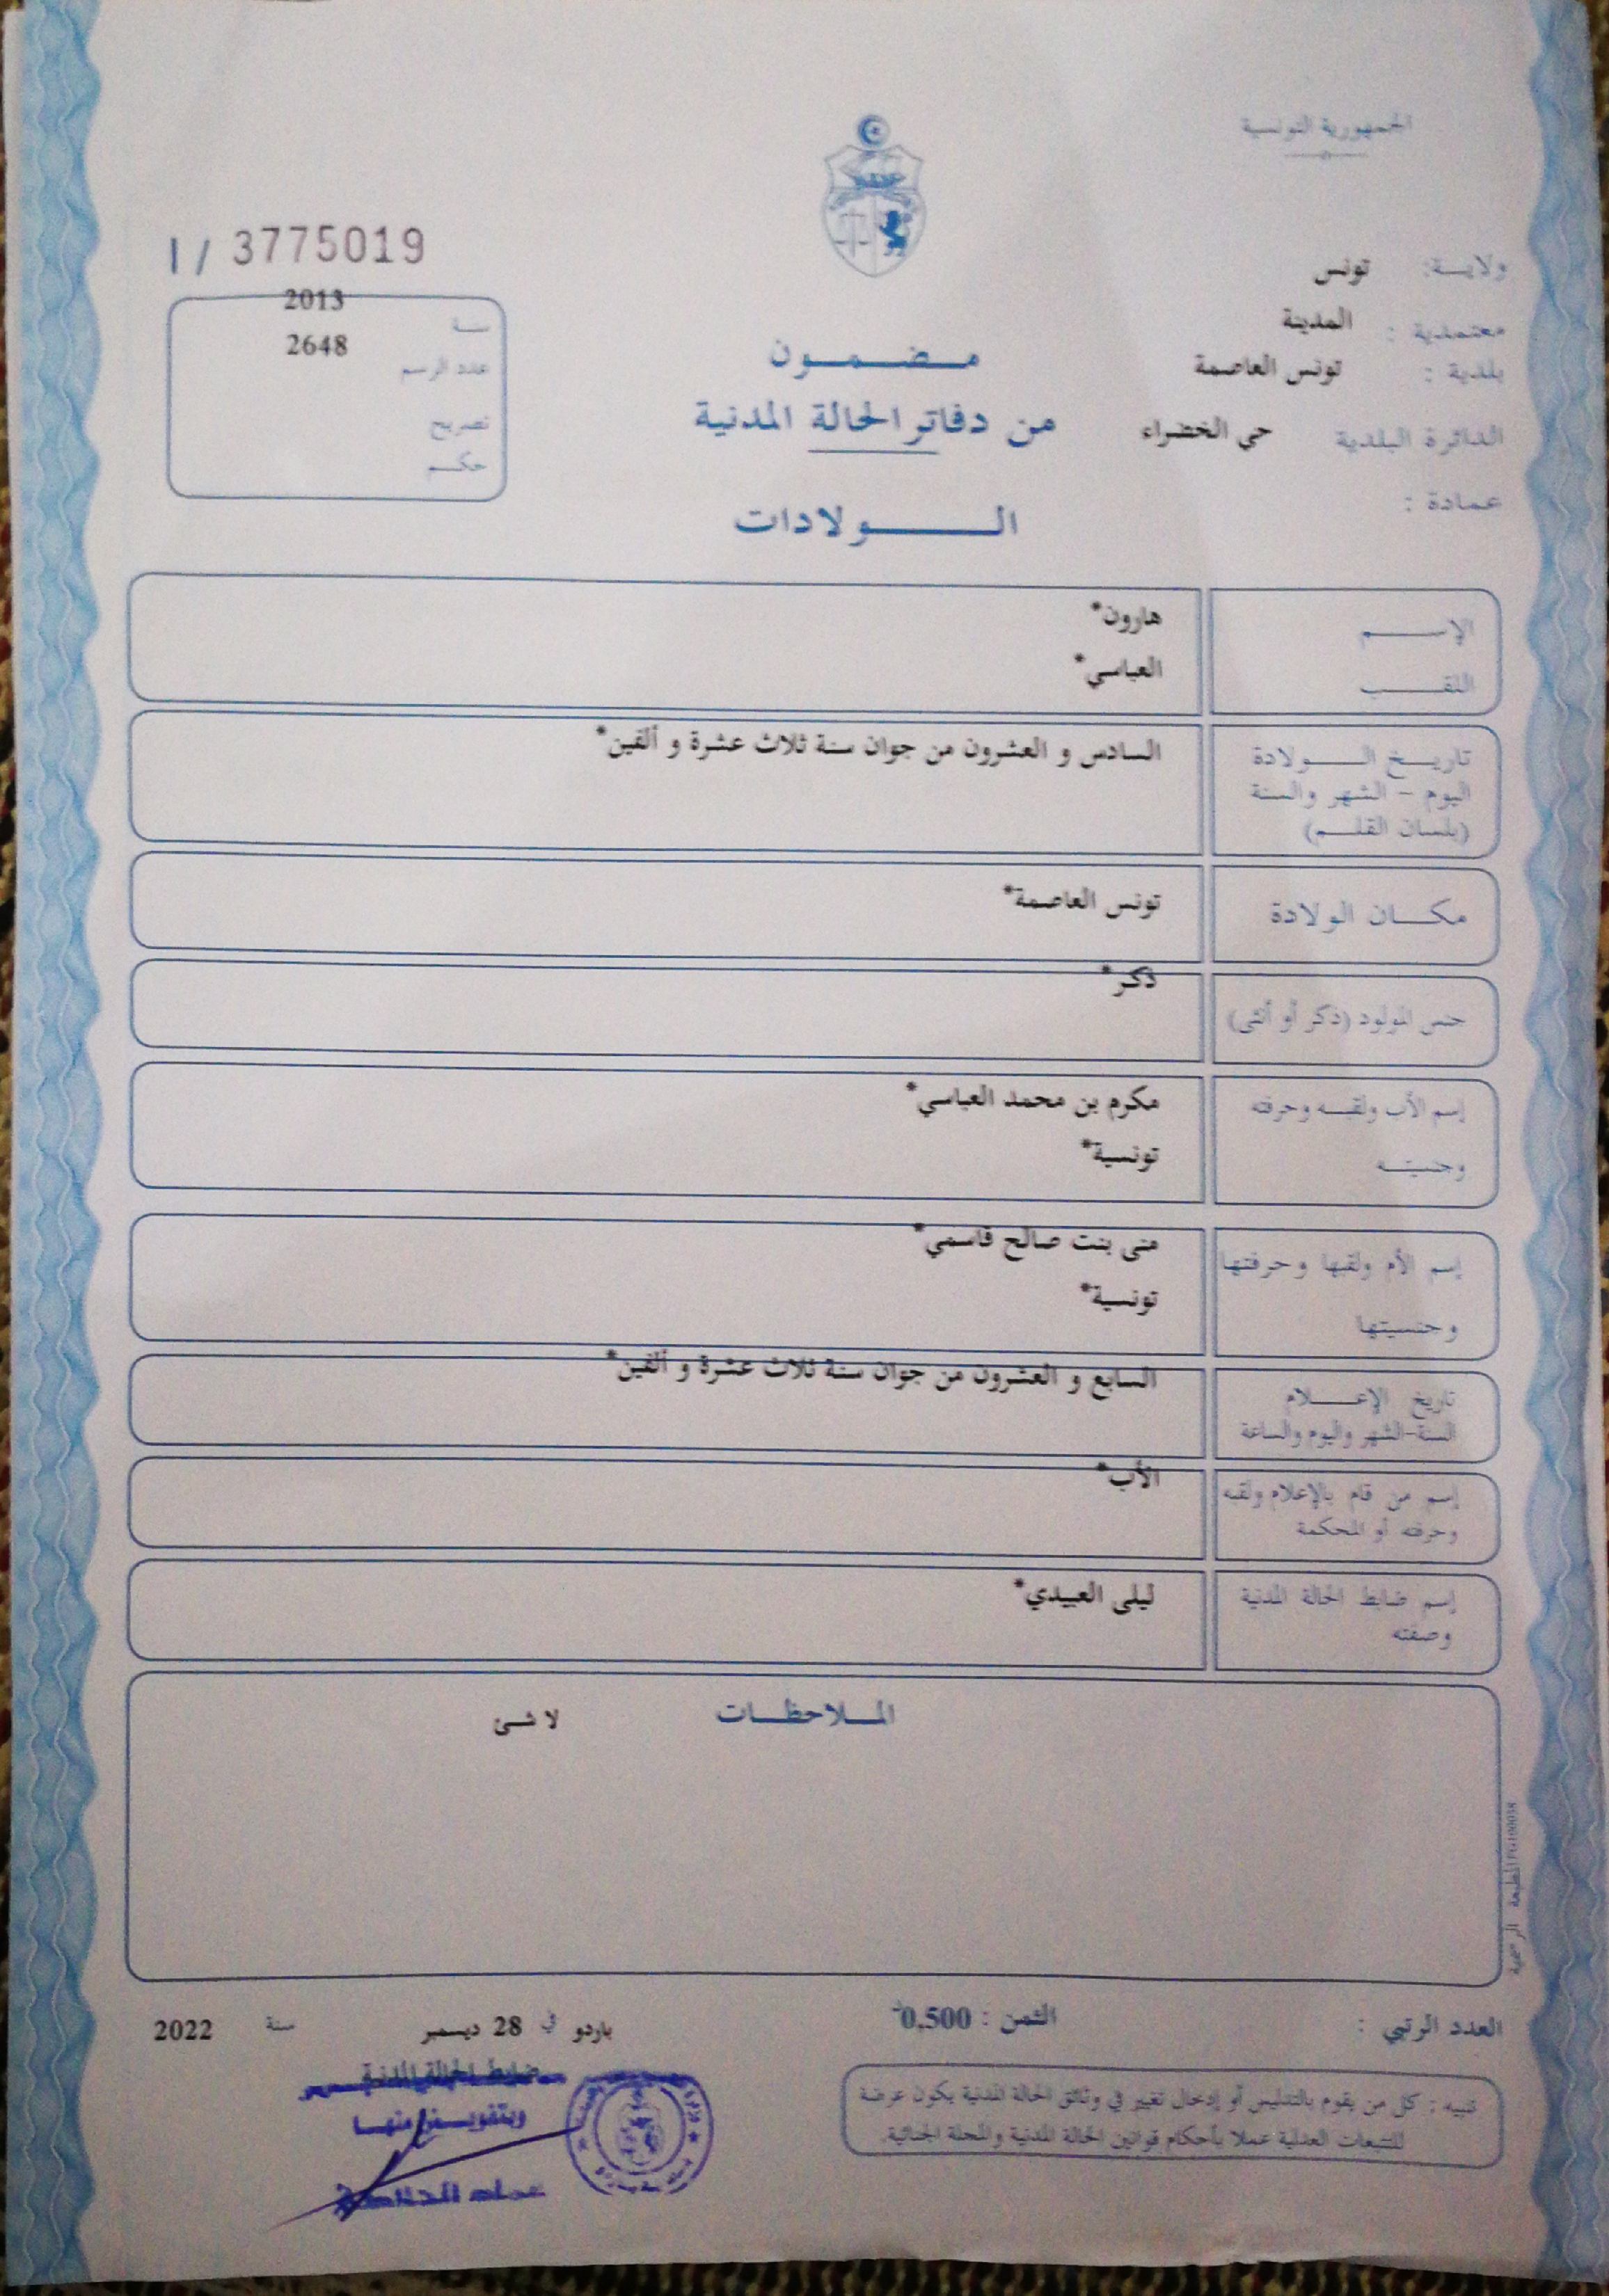 الجمهورية التونسية
I / 3775019
ولايـــة: تونس
معتمدية : المدينة
بلدية : تونس العاصمة
الدائرة البلدية حي الخضراء
عمادة :
سنة 2013
عدد الرسم 2648
تصريح
حكم
مضمون
من دفاتر الحالة المدنية
الولادات
الإسم هارون*
اللقب العباسي*
تاريخ الولادة السادس و العشرون من جوان سنة ثلاث عشرة و ألفين*
اليوم - الشهر والسنة
(بلسان القلم)
مكان الولادة تونس العاصمة*
جنس المولود (ذكر أو أنثى) ذكر*
إسم الأب ولقبه وحرفته مكرم بن محمد العباسي*
وجنسيته تونسية*
إسم الأم ولقبها وحرفتها منى بنت صالح قاسمي*
وجنسيتها تونسية*
تاريخ الإعلام السابع و العشرون من جوان سنة ثلاث عشرة و ألفين*
السنة-الشهر واليوم والساعة
إسم من قام بالإعلام ولقبه الأب*
وحرفته أو المحكمة
إسم ضابط الحالة المدنية ليلى العبيدي*
وصفته
الملاحظات لا شئ
المطبعة الرسمية
العدد الرتبي :
الثمن : 0.500د
باردو في 28 ديسمبر سنة 2022
ضابط الحالة المدنية
وبتفويض منها
تنبيه : كل من يقوم بالتدليس أو إدخال تغيير في وثائق الحالة المدنية يكون عرضة
للتتبعات العدلية عملا بأحكام قوانين الحالة المدنية والمجلة الجنائية.